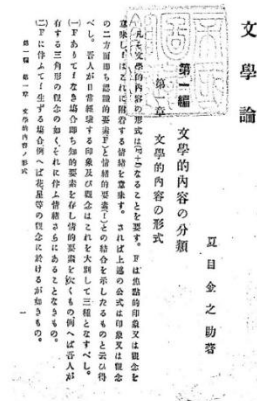 文學論
夏目金之助著
第一編　文學的内容の分類
第一章　文學的内容の形式
凡そ文學的内容の形式は(F+f)なることを要す。Fは焦點的印象又は觀念を
意味し、fはこれに附着する情緒を意味す。されば上述の公式は印象又は觀念
の二方面即ち認識的要素(F)と情緒的要素(f)との結合を示したるものと云ひ得
べし。吾人が日常經驗する印象及び觀念はこれを大別して三種となすべし。
(一)Fありてfなき場合即ち知的要素を存し情的要素を缺くもの例へば吾人が
有する三角形の觀念の如く、それに伴ふ情緒さらにあることなきもの。
(二)Fに伴ふてfを生ずる場合例へば花星等の觀念に於けるが如きもの。
第一編　第一章　文學的内容の形式
一